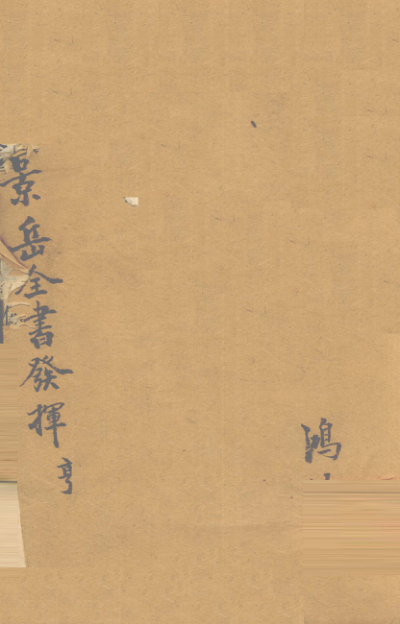 鴻
景岳全書發揮 亨